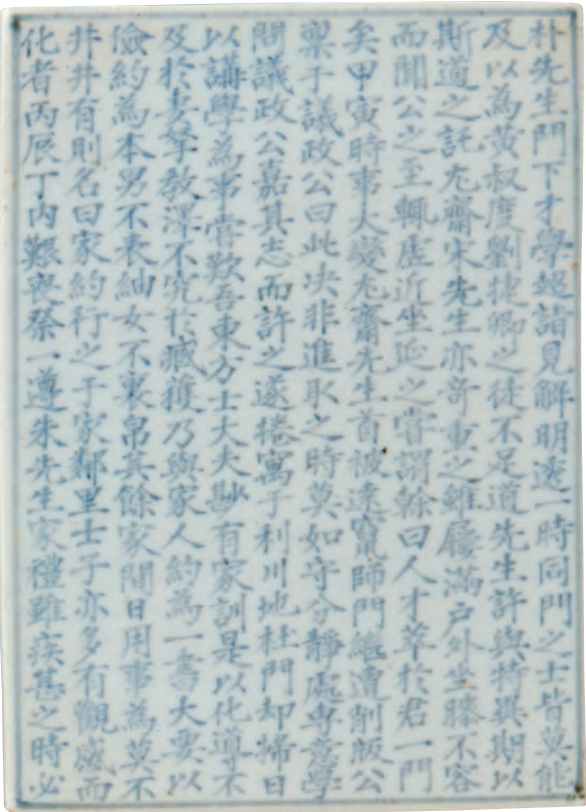 朴先生門下才學超詣見解明透一時同門之士皆莫能
及以為黃叔度劉捷卿之徒不足道先生許與特異期以
斯道之託尤齋宋先生亦奇重之雖屨滿户外坐膝不容
而聞公之至輒虛近坐延之嘗謂幹曰人才萃於君一門
矣甲寅時事大變尤齋先生首被遠竄師門繼遭削版公
稟于議政公曰此決非進取之時莫如守分靜處專意學
問議政公嘉其志而許之遂捲寓于利川地杜門却掃日
以講學為事嘗歎吾東方士大夫尠有家訓是以化導不
及於妻孥敎澤不究於臧獲乃與家人約為一書大要以
儉約為本男不衣紬女不裏帛其餘家間日用事為莫不
井井有則名曰家約行之于家鄰里士子亦多有觀感而
化者丙辰丁內艱喪祭一遵朱先生家禮雖疾甚之時必